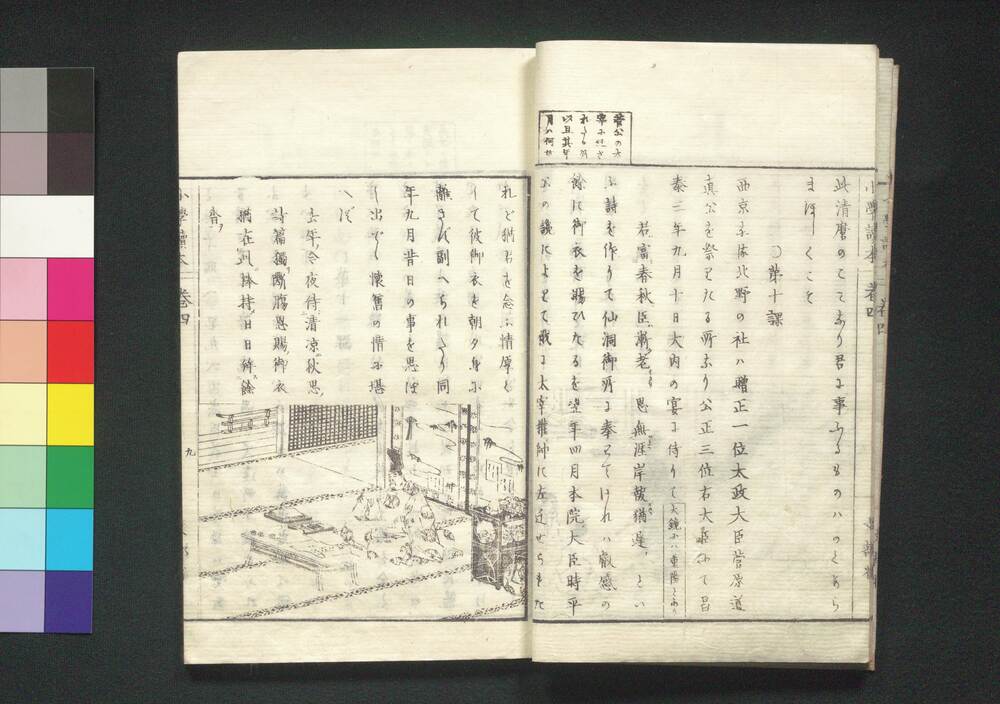 此清麿のことあり君に事ふるものハのくあら
まほしくこと
○第十課
西京なる北野の社ハ贈正一位太政大臣菅原道
真公を祭りたる所なり公正三位右大臣にて昌
泰三年九月十日大内の宴に侍りて
大鏡にハ重陽とあり
君富春秋臣漸老恩無涯岸報猶遅とい
ふ詩を作りて仙洞御所に奉りてけれハ叡感の
餘に御衣を賜ひたるを翌年四月本院大臣時平
公の讒によりて我に太宰権帥に左遷せられた
れど猶君を念ふ情厚く
して彼御衣を朝夕身に
離さで副へられたり同
年九月昔日の事を思ほ
し出でて懐舊の情に堪
へで
去年今夜侍清凉秋思
詩篇獨斷膓恩賜御衣
猶在此捧持毎日拜餘
香
小學讀本
卷四
九